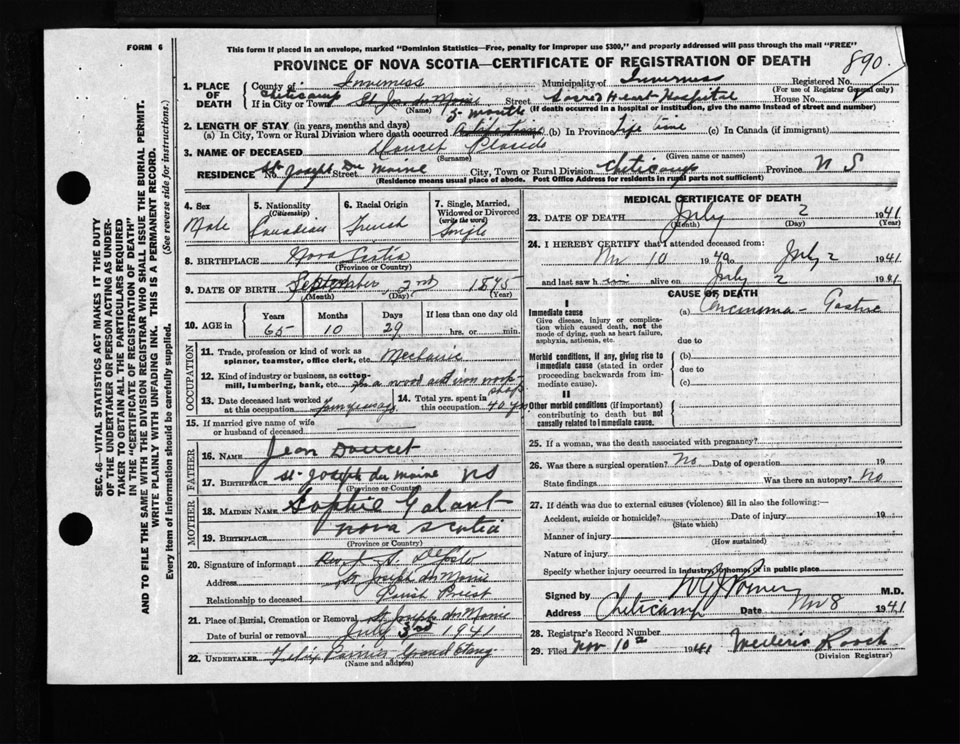 FORM 6
This form if placed in an envelope, marked "Dominion Statistics—Free, penalty for improper use $300," and properly addressed will pass through the mail "FREE"
PROVINCE OF NOVA SCOTIA—CERTIFICATE OF REGISTRATION OF DEATH
890
SEC. 46—VITAL STATISTICS ACT MAKES IT THE DUTY
OF THE UNDERTAKER OR PERSON ACTING AS UNDER-
TAKER TO OBTAIN ALL THE PARTICULARS REQUIRED
IN THE "CERTIFICATE OF REGISTRATION OF DEATH"
AND TO FILE THE SAME WITH THE DIVISION REGISTRAR WHO SHALL ISSUE THE BURIAL PERMIT.
WRITE PLAINLY WITH UNFADING INK. THIS IS A PERMANENT RECORD.
Every item of information should be carefully supplied. (See reverse side for instructions.)
1. PLACE OF DEATH
County of Inverness Municipality of Inverness Registered No.
(For use of Registrar General only)
Cheticamp
If in City or Town St. Jos. du Moine Street Sacred Heart Hospital House No.
(Name) (If death occurred in a hospital or institution, give the name instead of street and number)
2. LENGTH OF STAY (in years, months and days) 5 months
(a) In City, Town or Rural Division where death occurred (b) In Province Life time (c) In Canada (if immigrant)
3. NAME OF DECEASED Doucet Placide
(Surname) (Given name or names)
RESIDENCE No. St. Joseph Du Moine Street City, Town or Rural Division Cheticamp Province N S
(Residence means usual place of abode. Post Office Address for residents in rural parts not sufficient)
4. Sex Male
5. Nationality (Citizenship) Canadian
6. Racial Origin French
7. Single, Married, Widowed or Divorced (write the word) Single
8. BIRTHPLACE Nova Scotia
(Province or Country)
9. DATE OF BIRTH September 2nd 1875
(Month) (Day) (Year)
10. AGE in Years Months Days If less than one day old
65 10 29 hrs. or min.
OCCUPATION
11. Trade, profession or kind of work as spinner, teamster, office clerk, etc. Mechanic
12. Kind of industry or business, as cotton-mill, lumbering, bank, etc. In a wood and iron work shop
13. Date deceased last worked at this occupation
14. Total yrs. spent in this occupation 40 yrs
15. If married give name of wife or husband of deceased
FATHER
16. NAME Jean Doucet
17. BIRTHPLACE St Joseph du Moine NS
(Province or Country)
MOTHER
18. MAIDEN NAME Sophie
19. BIRTHPLACE Nova Scotia
(Province or Country)
20. Signature of informant Rev.
Address St Joseph du Moine
Relationship to deceased Parish Priest
21. Place of Burial, Cremation or Removal St Joseph du Moine
Date of burial or removal July 3rd 1941
22. UNDERTAKER Grand Etang
(Name and address)
MEDICAL CERTIFICATE OF DEATH
23. DATE OF DEATH July 2 1941
(Month) (Day) (Year)
24. I HEREBY CERTIFY that I attended deceased from:
10 1940 to July 2 1941
and last saw h alive on July 2 1941
CAUSE OF DEATH
I
Immediate cause (a) Carcinoma — Gastric
Give disease, injury or complication which caused death, not the mode of dying, such as heart failure, asphyxia, asthenia, etc.
due to
Morbid conditions, if any, giving rise to immediate cause (stated in order proceeding backwards from immediate cause). (b)
due to
(c)
II
Other morbid conditions (if important) contributing to death but not causally related to immediate cause.
25. If a woman, was the death associated with pregnancy?
26. Was there a surgical operation? No Date of operation 19
State findings Was there an autopsy? No
27. If death was due to external causes (violence) fill in also the following:—
Accident, suicide or homicide? Date of injury 19
(State which)
Manner of injury
(How sustained)
Nature of injury
Specify whether injury occurred in industry, in home, or in public place
Signed by M.D.
Address Cheticamp Date 8 1941
28. Registrar's Record Number
29. Filed Nov 10th 1941
(Division Registrar)